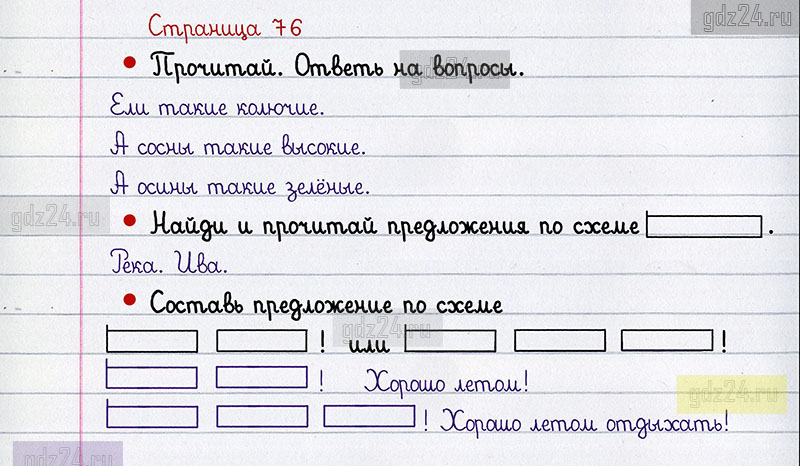 gdz24.ru
Страница 76
• Прочитай. Ответь на вопросы.
gdz24.ru
Ели такие колючие.
А сосны такие высокие.
А осины такие зелёные.
gdz24.ru
• Найди и прочитай предложения по схеме .
Река. Ива.
• Составь предложение по схеме
gdz24.ru
! или !
! Хорошо летом!
gdz24.ru
! Хорошо летом отдыхать!
gdz24.ru